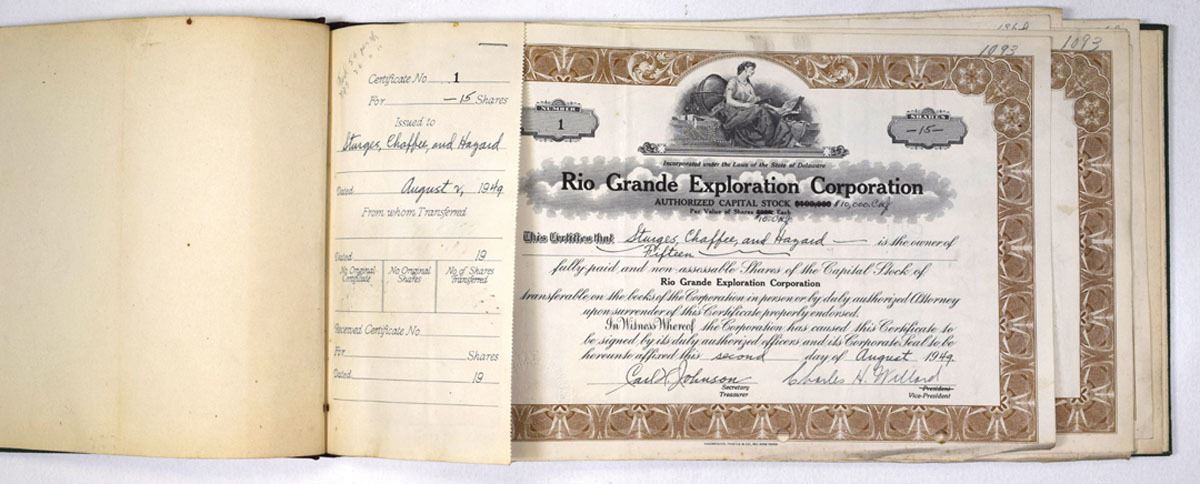 Certificate No. 1
For —15 Shares
Issued to
Sturges, Chaffee, and Hazard
Dated August 2, 1949
From whom Transferred
Dated 19
No. Original Certificate
No. Original Shares
No. of Shares Transferred
Received Certificate No.
For Shares
Dated 19
1093
1093
NUMBER
1
SHARES
—15—
Incorporated under the Laws of the State of Delaware
Rio Grande Exploration Corporation
AUTHORIZED CAPITAL STOCK $100,000 $10,000.
Par Value of Shares Each
This Certifies that Sturges, Chaffee, and Hazard — is the owner of
Fifteen
fully paid and non-assessable Shares of the Capital Stock of
Rio Grande Exploration Corporation
transferable on the books of the Corporation in person or by duly authorized Attorney
upon surrender of this Certificate properly endorsed.
In Witness Whereof, the Corporation has caused this Certificate to
be signed by its duly authorized officers and its Corporate Seal to be
hereunto affixed this second day of August 1949.
Carl H. Johnson Charles H. Willard
Secretary President
Treasurer Vice-President